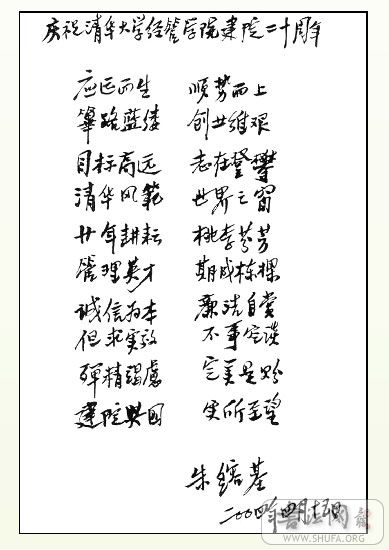 庆祝清华大学经管学院建院二十周年
应运而生 顺势而上
篳路蓝缕 创业维艰
目标高远 志在登攀
清华风範 世界之窗
廿年耕耘 桃李芬芳
管理英才 期成栋樑
诚信为本 廉洁自赏
但求实效 不事空谈
殫精竭慮 完美是盼
建院興国 实所至望
朱镕基
二〇〇四年四月十五日
書法网
WWW.SHUFA.ORG